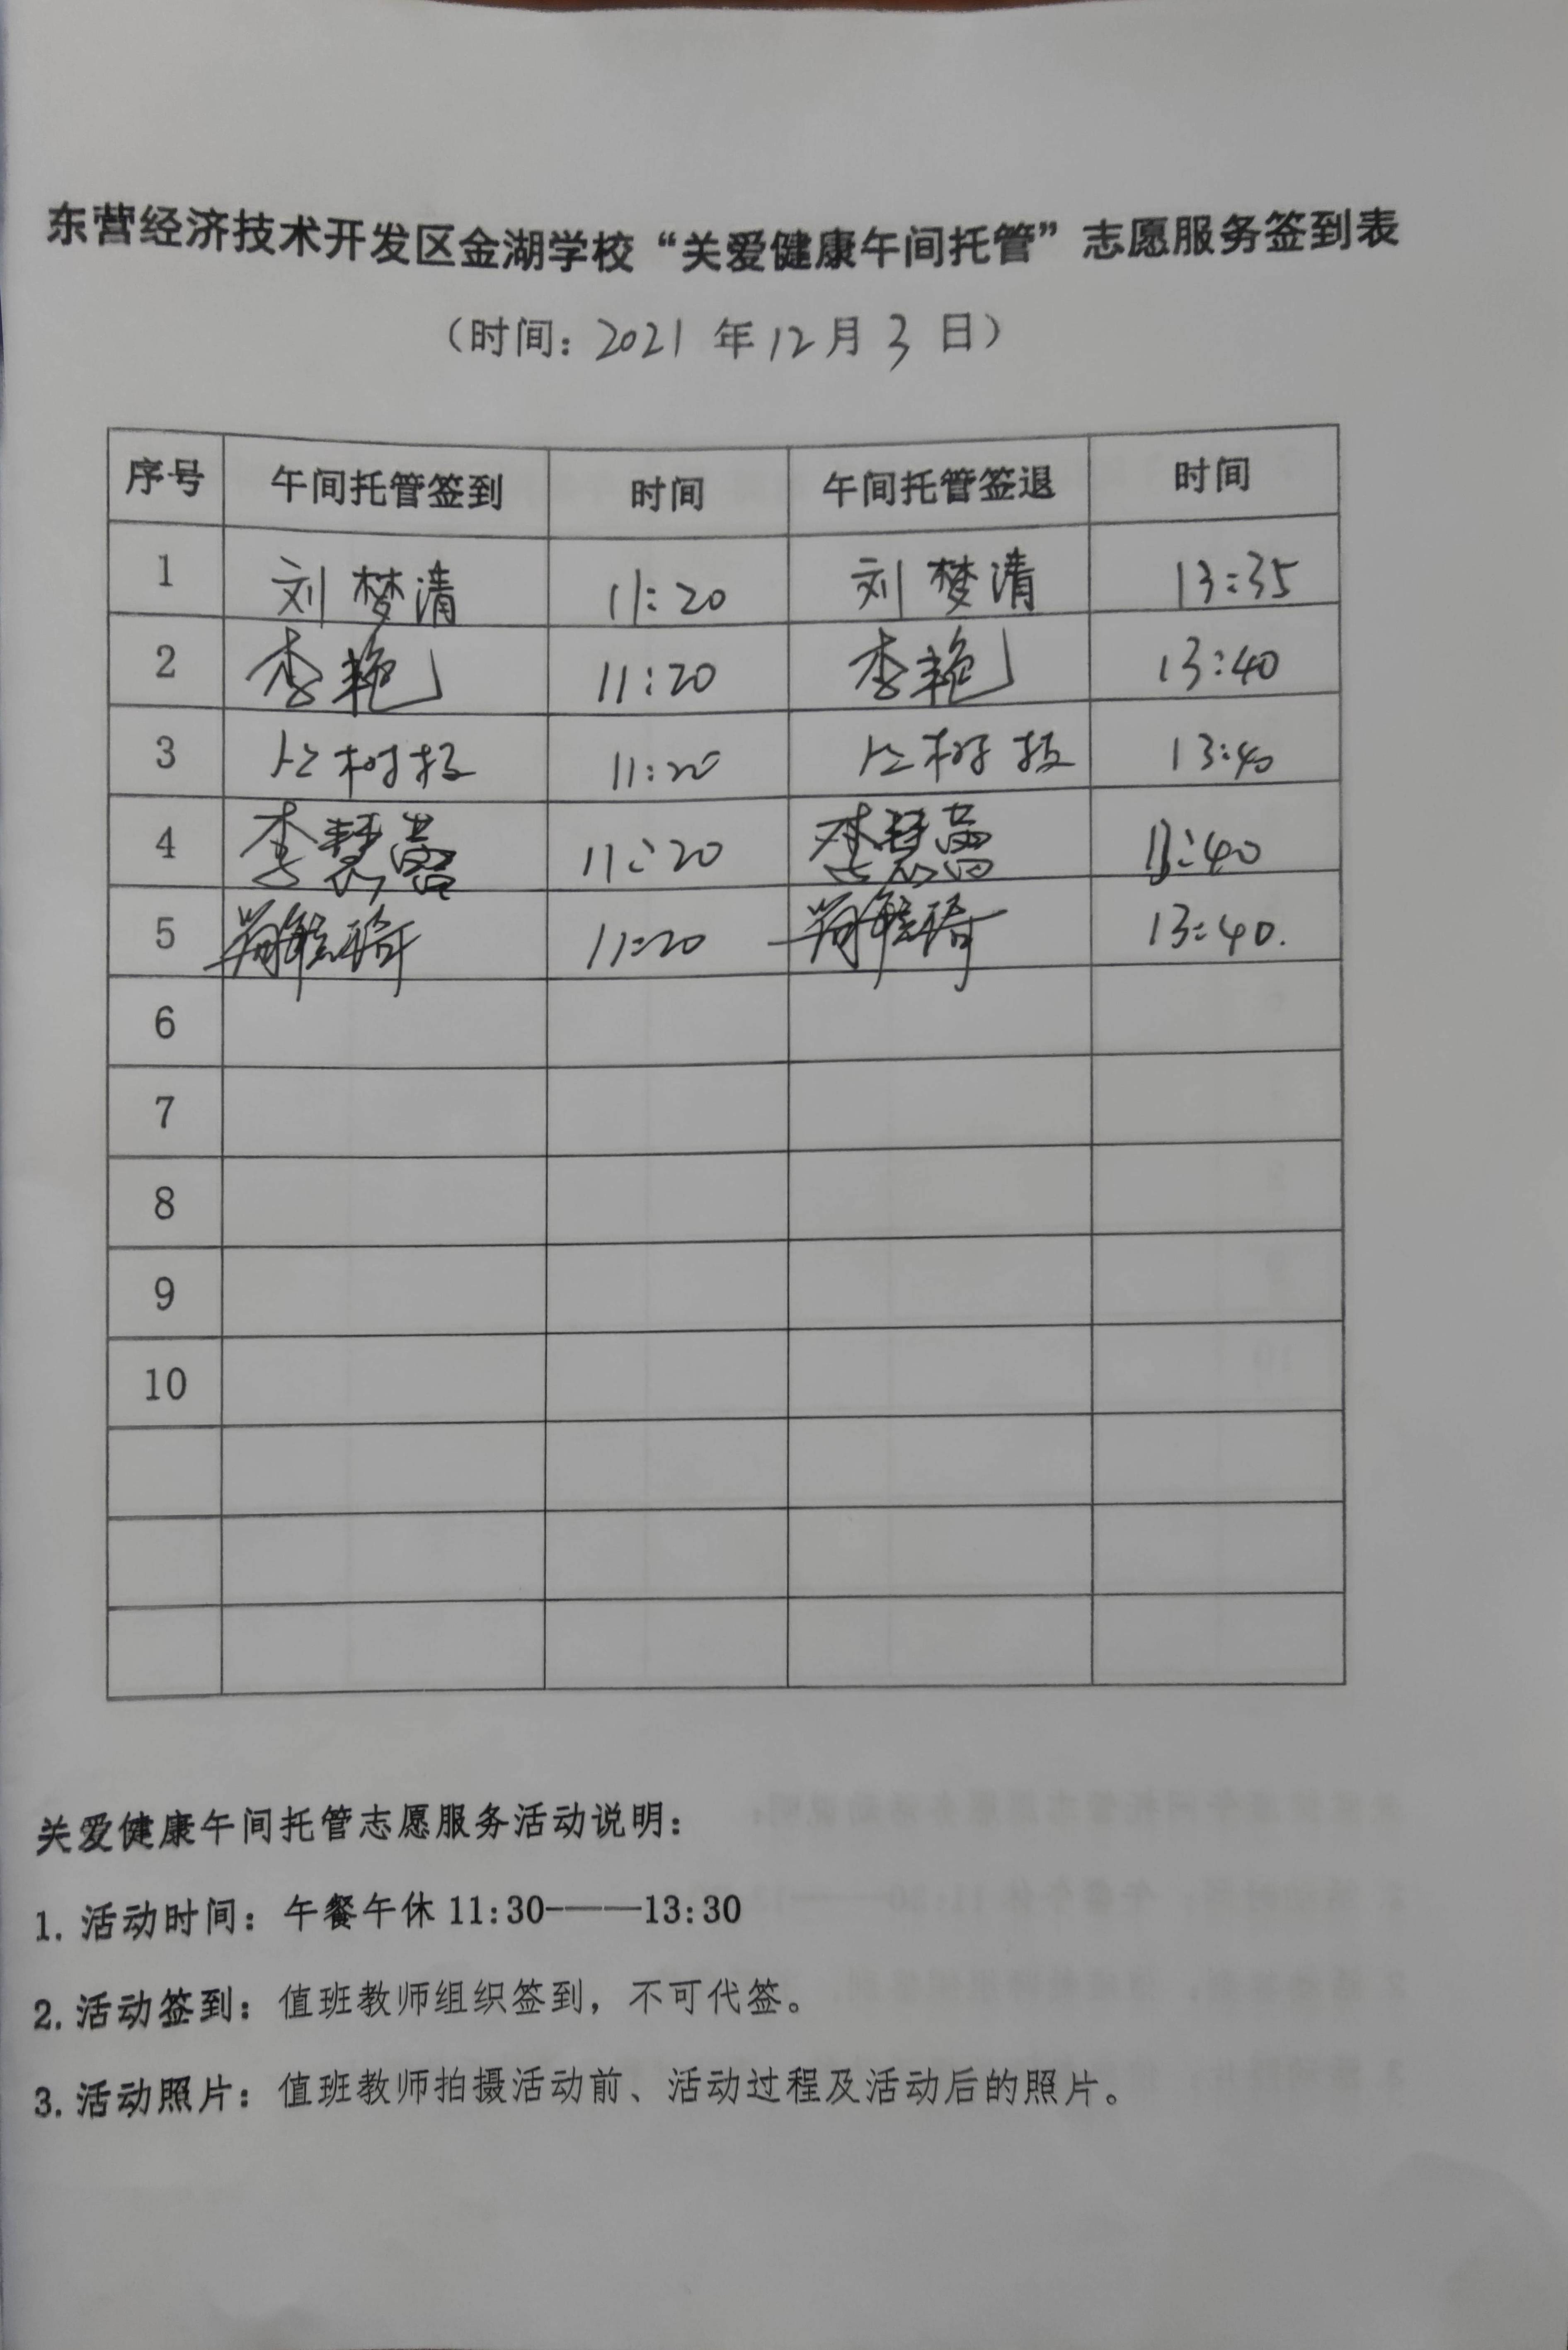 东营经济技术开发区金湖学校“关爱健康午间托管”志愿服务签到表
（时间：2021 年 12 月 3 日）
序号 午间托管签到 时间 午间托管签退 时间
1 刘梦清 11:20 刘梦清 13:35
2 李艳 11:20 李艳 13:40
3 11:20 13:40
4 李慧 11:20 李慧 13:40
5 11:20 13:40.
6
7
8
9
10
关爱健康午间托管志愿服务活动说明：
1. 活动时间：午餐午休 11:30-——13:30
2. 活动签到：值班教师组织签到，不可代签。
3. 活动照片：值班教师拍摄活动前、活动过程及活动后的照片。